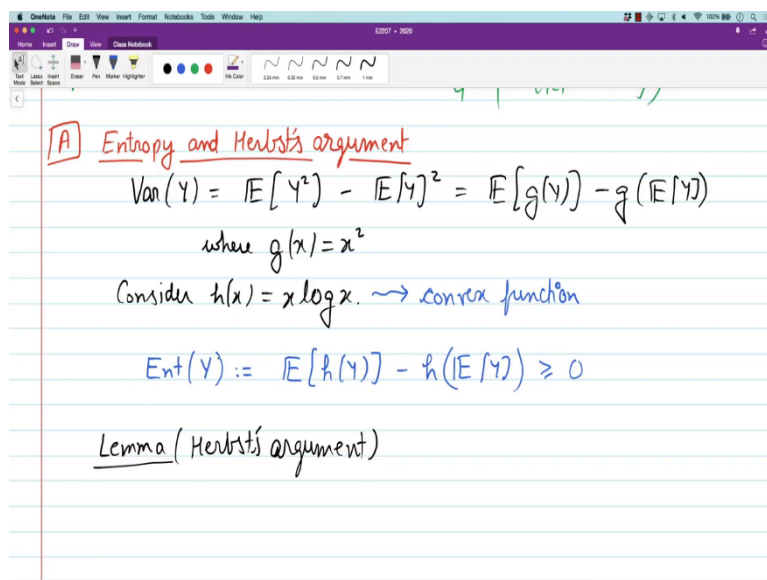 OneNote File Edit View Insert Format Notebooks Tools Window Help 100%
E2207 - 2020
Home Insert Draw View Class Notebook
Text Mode Lasso Select Insert Space Eraser Pen Marker Highlighter Ink Color 0.25 mm 0.35 mm 0.5 mm 0.7 mm 1 mm
A Entropy and Herbst's argument
Var(Y) = E[Y²] - E[Y]² = E[g(Y)] - g(E[Y])
where g(x) = x²
Consider h(x) = x log x. ⇝ convex function
Ent(Y) := E[h(Y)] - h(E[Y]) ⩾ 0
Lemma (Herbst's argument)